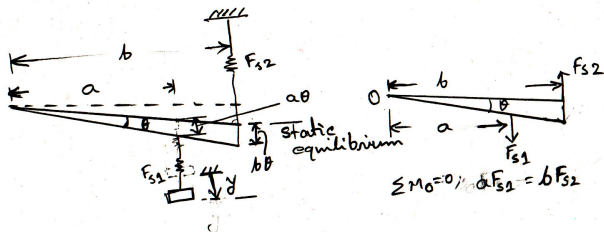 b
F_s2
a
aθ
θ
static
equilibrium
bθ
F_s1
y
F_s2
b
O
θ
a
F_s1
ΣM_0=0; aF_s1 = bF_s2